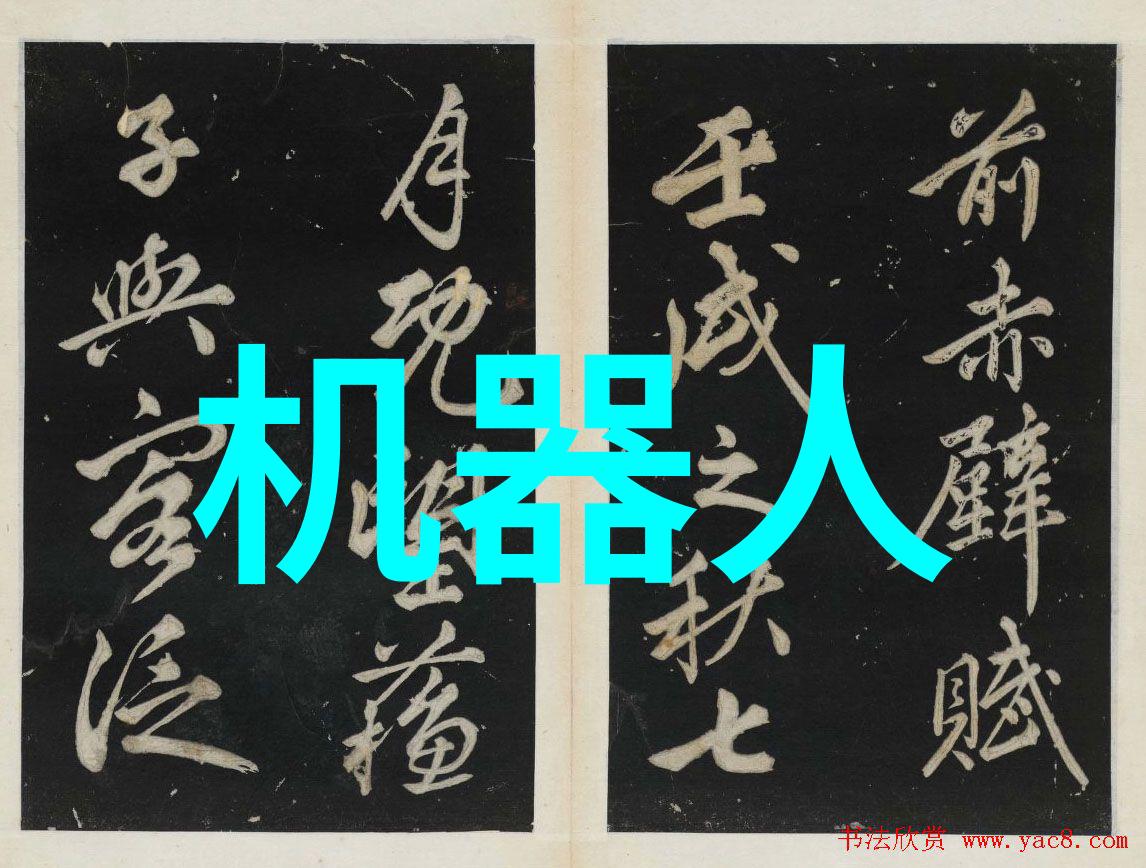 前赤壁賦
壬戌之秋七
月既望蘇
子與客泛
机器人
书法欣赏 www.yac8.com